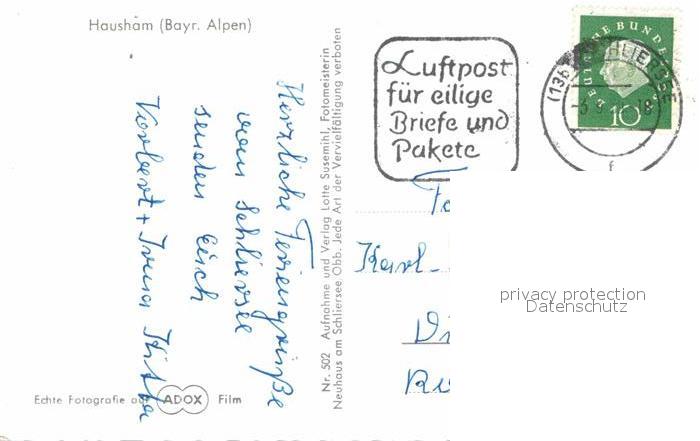 Hausham (Bayr. Alpen)
Herzliche Feriengrüße
vom Schliersee
senden Euch
Norbert + Irma
Nr. 502 Aufnahme und Verlag Lotte Susemihl, Fotomeisterin
Neuhaus am Schliersee Obb. Jede Art der Vervielfältigung verboten
Echte Fotografie auf ADOX Film
Luftpost
für eilige
Briefe und
Pakete
DEUTSCHE BUNDESPOST
10
(13b) SCHLIERSEE
f
Karl-
privacy protection
Datenschutz